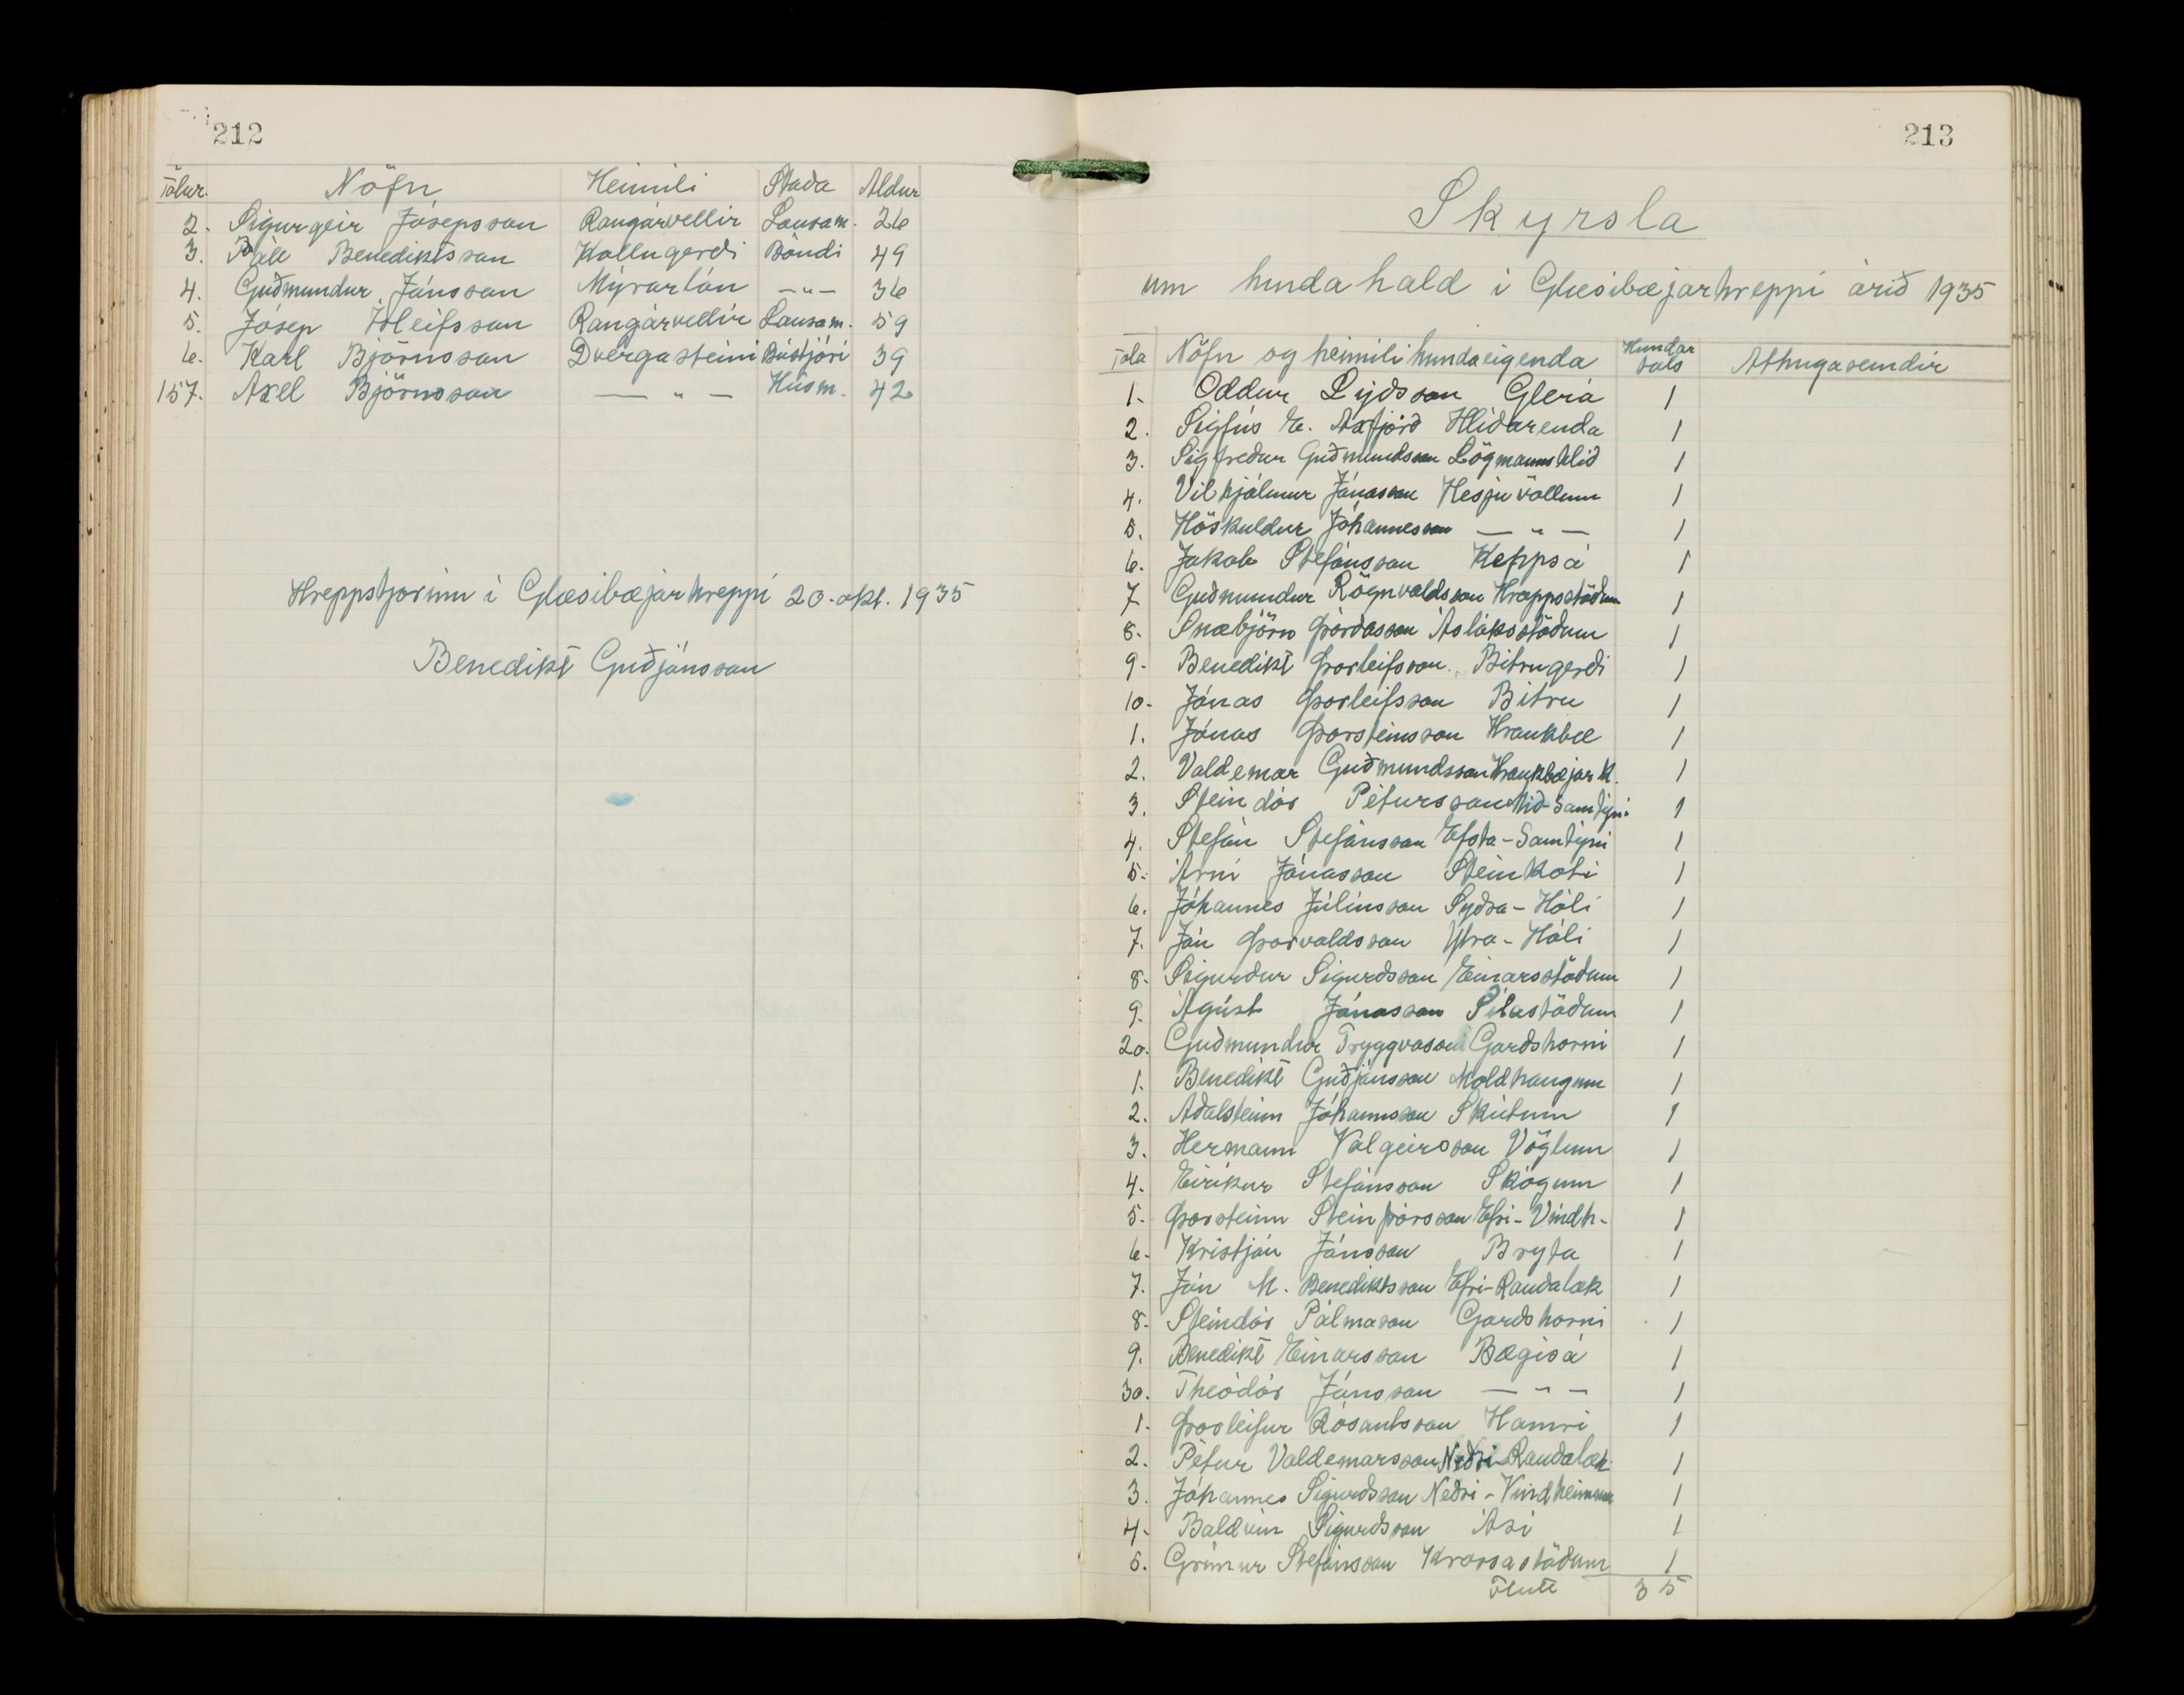 212
Tölur. Nöfn Heimili Staða Aldur
2. Sigurgeir Jósepsson Rangárvellir Lausam. 26
3. Páll Benediktsson Kollugerði Bóndi 49
4. Guðmundur Jónsson Mýrarlón —„— 36
5. Jósep Ísleifsson Rangárvellir Lausam. 59
6. Karl Björnsson Dvergasteini Bústjóri 39
157. Axel Björnsson — „ — Húsm. 42
Hreppstjórinn í Glæsibæjarhreppi 20. okt. 1935
Benedikt Guðjónsson
213
Skýrsla
um hundahald í Glæsibæjarhreppi árið 1935
Tala Nöfn og heimili hundaeigenda Hundar tals Athugasemdir
1. Oddur Lýðsson Glerá 1
2. Sigfús E. Axfjörð Hlíðarenda 1
3. Sigfreður Guðmundsson Lögmannshlíð 1
4. Vilhjálmur Jónasson Hesjuvöllum 1
5. Höskuldur Jóhannesson — „ — 1
6. Jakob Stefánsson Keppsá 1
7 Guðmundur Rögnvaldsson Hrappsstöðum 1
8. Snæbjörn Þórðasson Ásláksstöðum 1
9. Benedikt Þorleifsson Bitrugerði 1
10. Jónas Þorleifsson Bitru 1
1. Jónas Þorsteinsson Kraukbæ 1
2. Valdemar Guðmundsson Kraukbæjark. 1
3. Steindór Pétursson Mið-Samtýni 1
4. Stefán Stefánsson Efsta-Samtýni 1
5. Árni Jónasson Steinkoti 1
6. Jóhannes Júlíusson Syðra-Hóli 1
7. Jón Þorvaldsson Ytra-Hóli 1
8. Sigurður Sigurðsson Einarsstöðum 1
9. Ágúst Jónasson Sílastöðum 1
20. Guðmundur Tryggvason Garðshorni 1
1. Benedikt Guðjónsson Moldhaugum 1
2. Aðalsteinn Jóhannsson Skútum 1
3. Hermann Valgeirsson Vöglum 1
4. Eiríkur Stefánsson Skógum 1
5. Þorsteinn Steinþórsson Efri-Vindh. 1
6. Kristján Jónsson Bryta 1
7. Jón M. Benediktsson Efri-Rauðalæk 1
8. Steindór Pálmason Garðshorni 1
9. Benedikt Einarsson Bægisá 1
30. Theódór Jónsson — „ — 1
1. Þorleifur Rósantsson Hamri 1
2. Pétur Valdemarsson Neðri-Rauðalæk 1
3. Jóhannes Sigurðsson Neðri-Vindheimum 1
4. Baldvin Sigurðsson Ási 1
5. Grímur Stefánsson Krossastöðum 1
Flutt 35